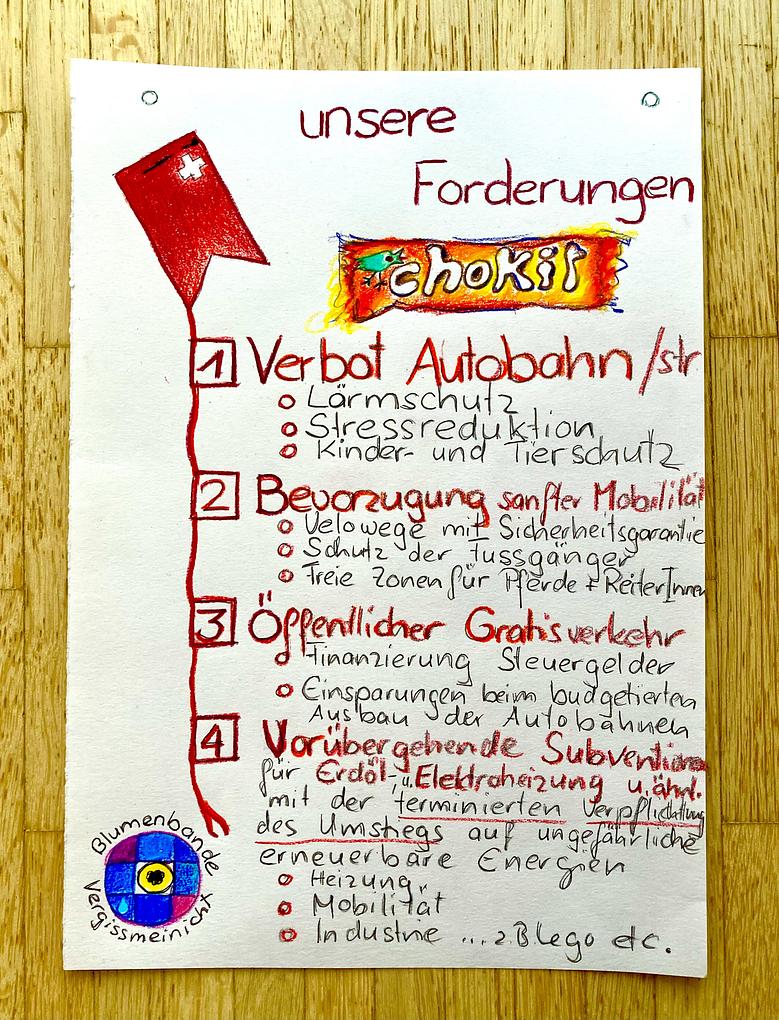 unsere
Forderungen
chokit
1 Verbot Autobahn/str
Lärmschutz
Stressreduktion
Kinder- und Tierschutz
2 Bevorzugung sanfter Mobilität
Velowege mit Sicherheitsgarantie
Schutz der Fussgänger
Freie Zonen für Pferde + ReiterInnen
3 Öffentlicher Gratisverkehr
Finanzierung Steuergelder
Einsparungen beim budgetierten
Ausbau der Autobahnen
4 Vorübergehende Subvention
für Erdöl-, Elektroheizung u. ähnl.
mit der terminierten Verpflichtung
des Umstiegs auf ungefährliche
erneuerbare Energien
Heizung,
Mobilität
Industrie ... z.B Lego etc.
Blumenbande
Vergissmeinicht